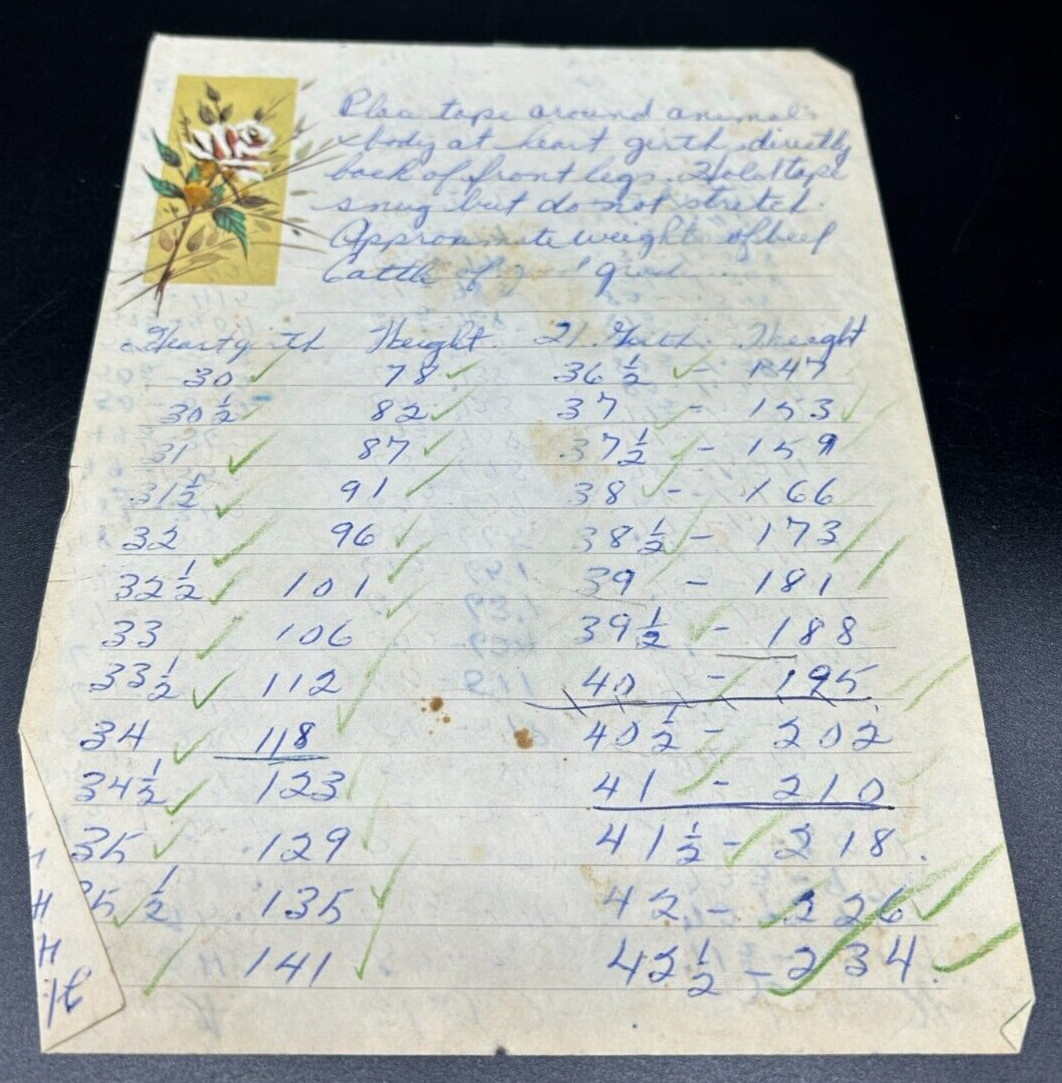 Plac tape around animals
body at heart girth, directly
back of front legs. Hold tape
snug but do not stretch.
Approximate weights of beef
Cattle of good
Heartgirth Weight H. Girth Weight
30 78 36 1/2 - 147
30 1/2 82 37 - 153
31 87 37 1/2 - 159
31 1/2 91 38 - 166
32 96 38 1/2 - 173
32 1/2 101 39 - 181
33 106 39 1/2 - 188
33 1/2 112 40 - 195
34 118 40 1/2 - 202
34 1/2 123 41 - 210
35 129 41 1/2 - 218.
35 1/2 135 42 - 226
141 42 1/2 - 234
H
H